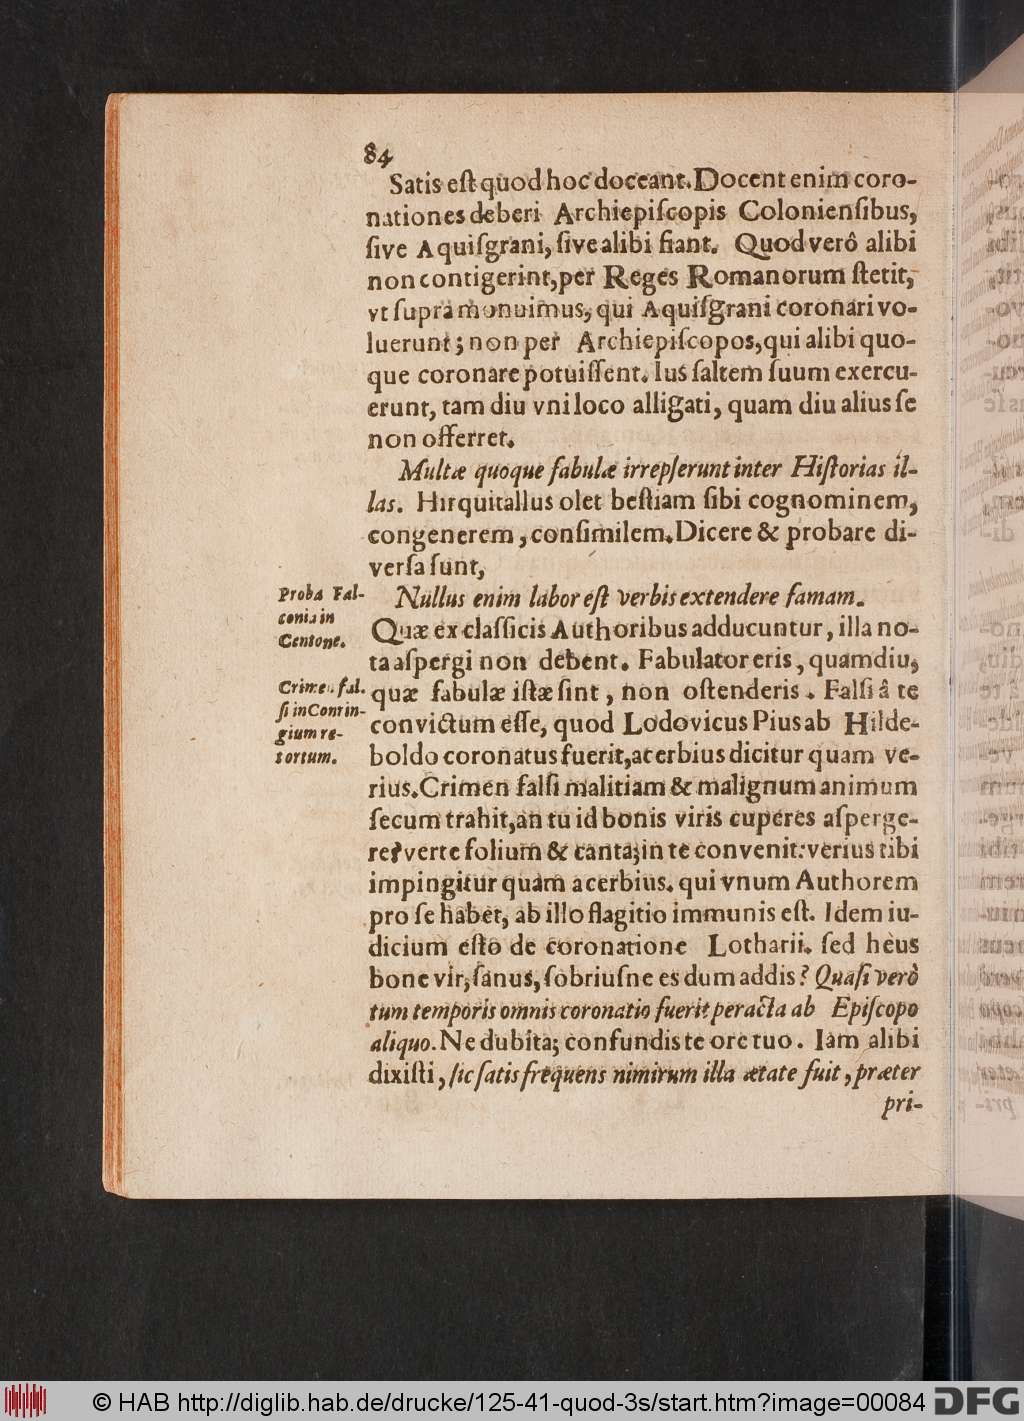 84
Satis eſt quod hoc doceant. Docent enim coro-
nationes deberi Archiepiſcopis Colonienſibus,
ſive Aquiſgrani, ſive alibi fiant. Quod verô alibi
non contigerint, per Reges Romanorum ſtetit,
vt ſupra monuimus, qui Aquiſgrani coronari vo-
luerunt; non per Archiepiſcopos, qui alibi quo-
que coronare potuiſſent. Ius ſaltem ſuum exercu-
erunt, tam diu vni loco alligati, quam diu alius ſe
non offerret.
Multæ quoque fabulæ irrepſerunt inter Hiſtorias il-
las. Hirquitallus olet beſtiam ſibi cognominem,
congenerem, conſimilem. Dicere & probare di-
verſa ſunt,
Proba Fal-
conia in
Centone.
Nullus enim labor eſt verbis extendere famam.
Quæ ex claſſicis Authoribus adducuntur, illa no-
ta aſpergi non debent. Fabulator eris, quamdiu,
Crimen fal-
ſi in Conrin-
gium re-
tortum.
quæ fabulæ iſtæ ſint, non oſtenderis. Falſi â te
convictum eſſe, quod Lodovicus Pius ab Hilde-
boldo coronatus fuerit, acerbius dicitur quam ve-
rius. Crimen falſi malitiam & malignum animum
ſecum trahit, an tu id bonis viris cuperes aſperge-
re? verte folium & canta; in te convenit: verius tibi
impingitur quàm acerbius. qui vnum Authorem
pro ſe habet, ab illo flagitio immunis eſt. Idem iu-
dicium eſto de coronatione Lotharii. ſed heus
bone vir, ſanus, ſobriuſne es dum addis? Quaſi verò
tum temporis omnis coronatio fuerit peracta ab Epiſcopo
aliquo. Ne dubita; confundis te ore tuo. Iam alibi
dixiſti, ſic ſatis frequens nimirum illa ætate fuit, præter
pri-
© HAB http://diglib.hab.de/drucke/125-41-quod-3s/start.htm?image=00084
DFG